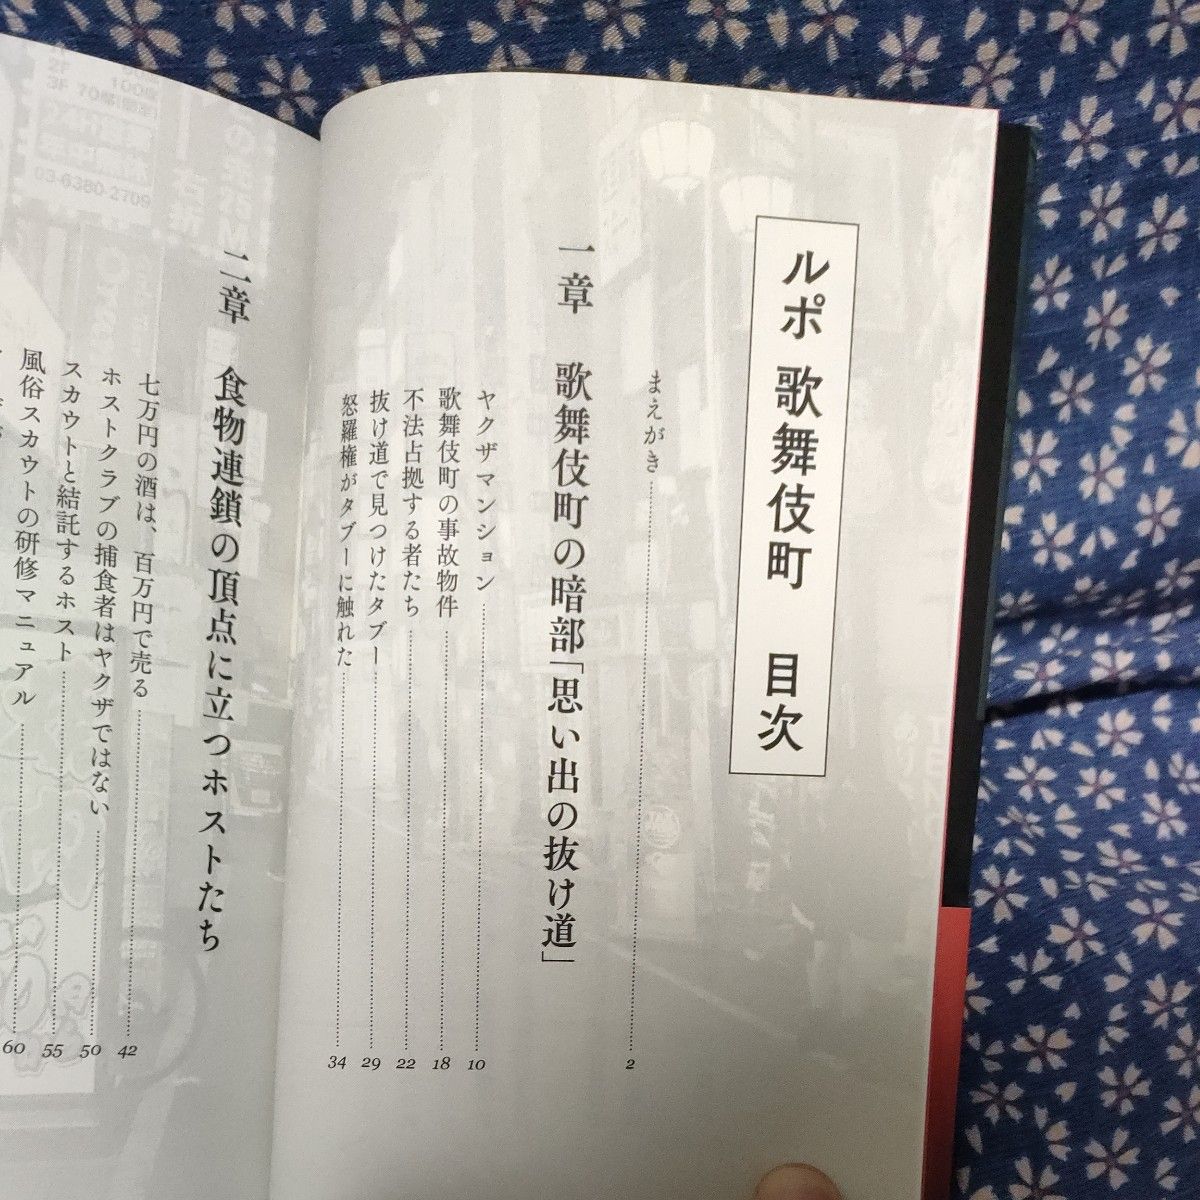 ルポ 歌舞伎町 目次
まえがき 2
一章 歌舞伎町の暗部「思い出の抜け道」
ヤクザマンション 10
歌舞伎町の事故物件 18
不法占拠する者たち 22
抜け道で見つけたタブー 29
怒羅権がタブーに触れた 34
二章 食物連鎖の頂点に立つホストたち
七万円の酒は、百万円で売る 42
ホストクラブの捕食者はヤクザではない 50
スカウトと結託するホスト 55
風俗スカウトの研修マニュアル 60
2F 100席
3F 70席
03-6380-2709